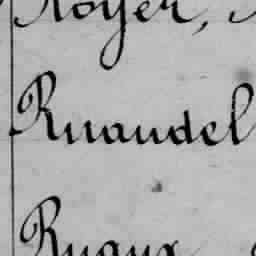 Royer,
Ruaudel
Ruaux